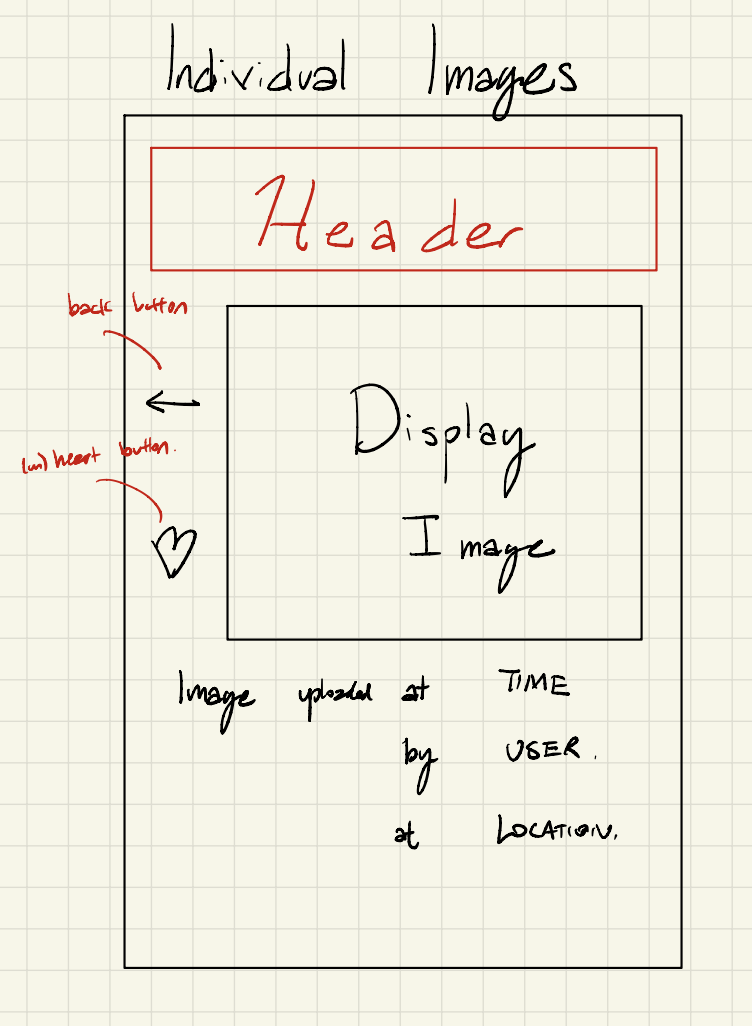 Individual Images
Header
back button
Display
(un) heart button.
Image
Image uploaded at TIME
by USER.
at LOCATION.